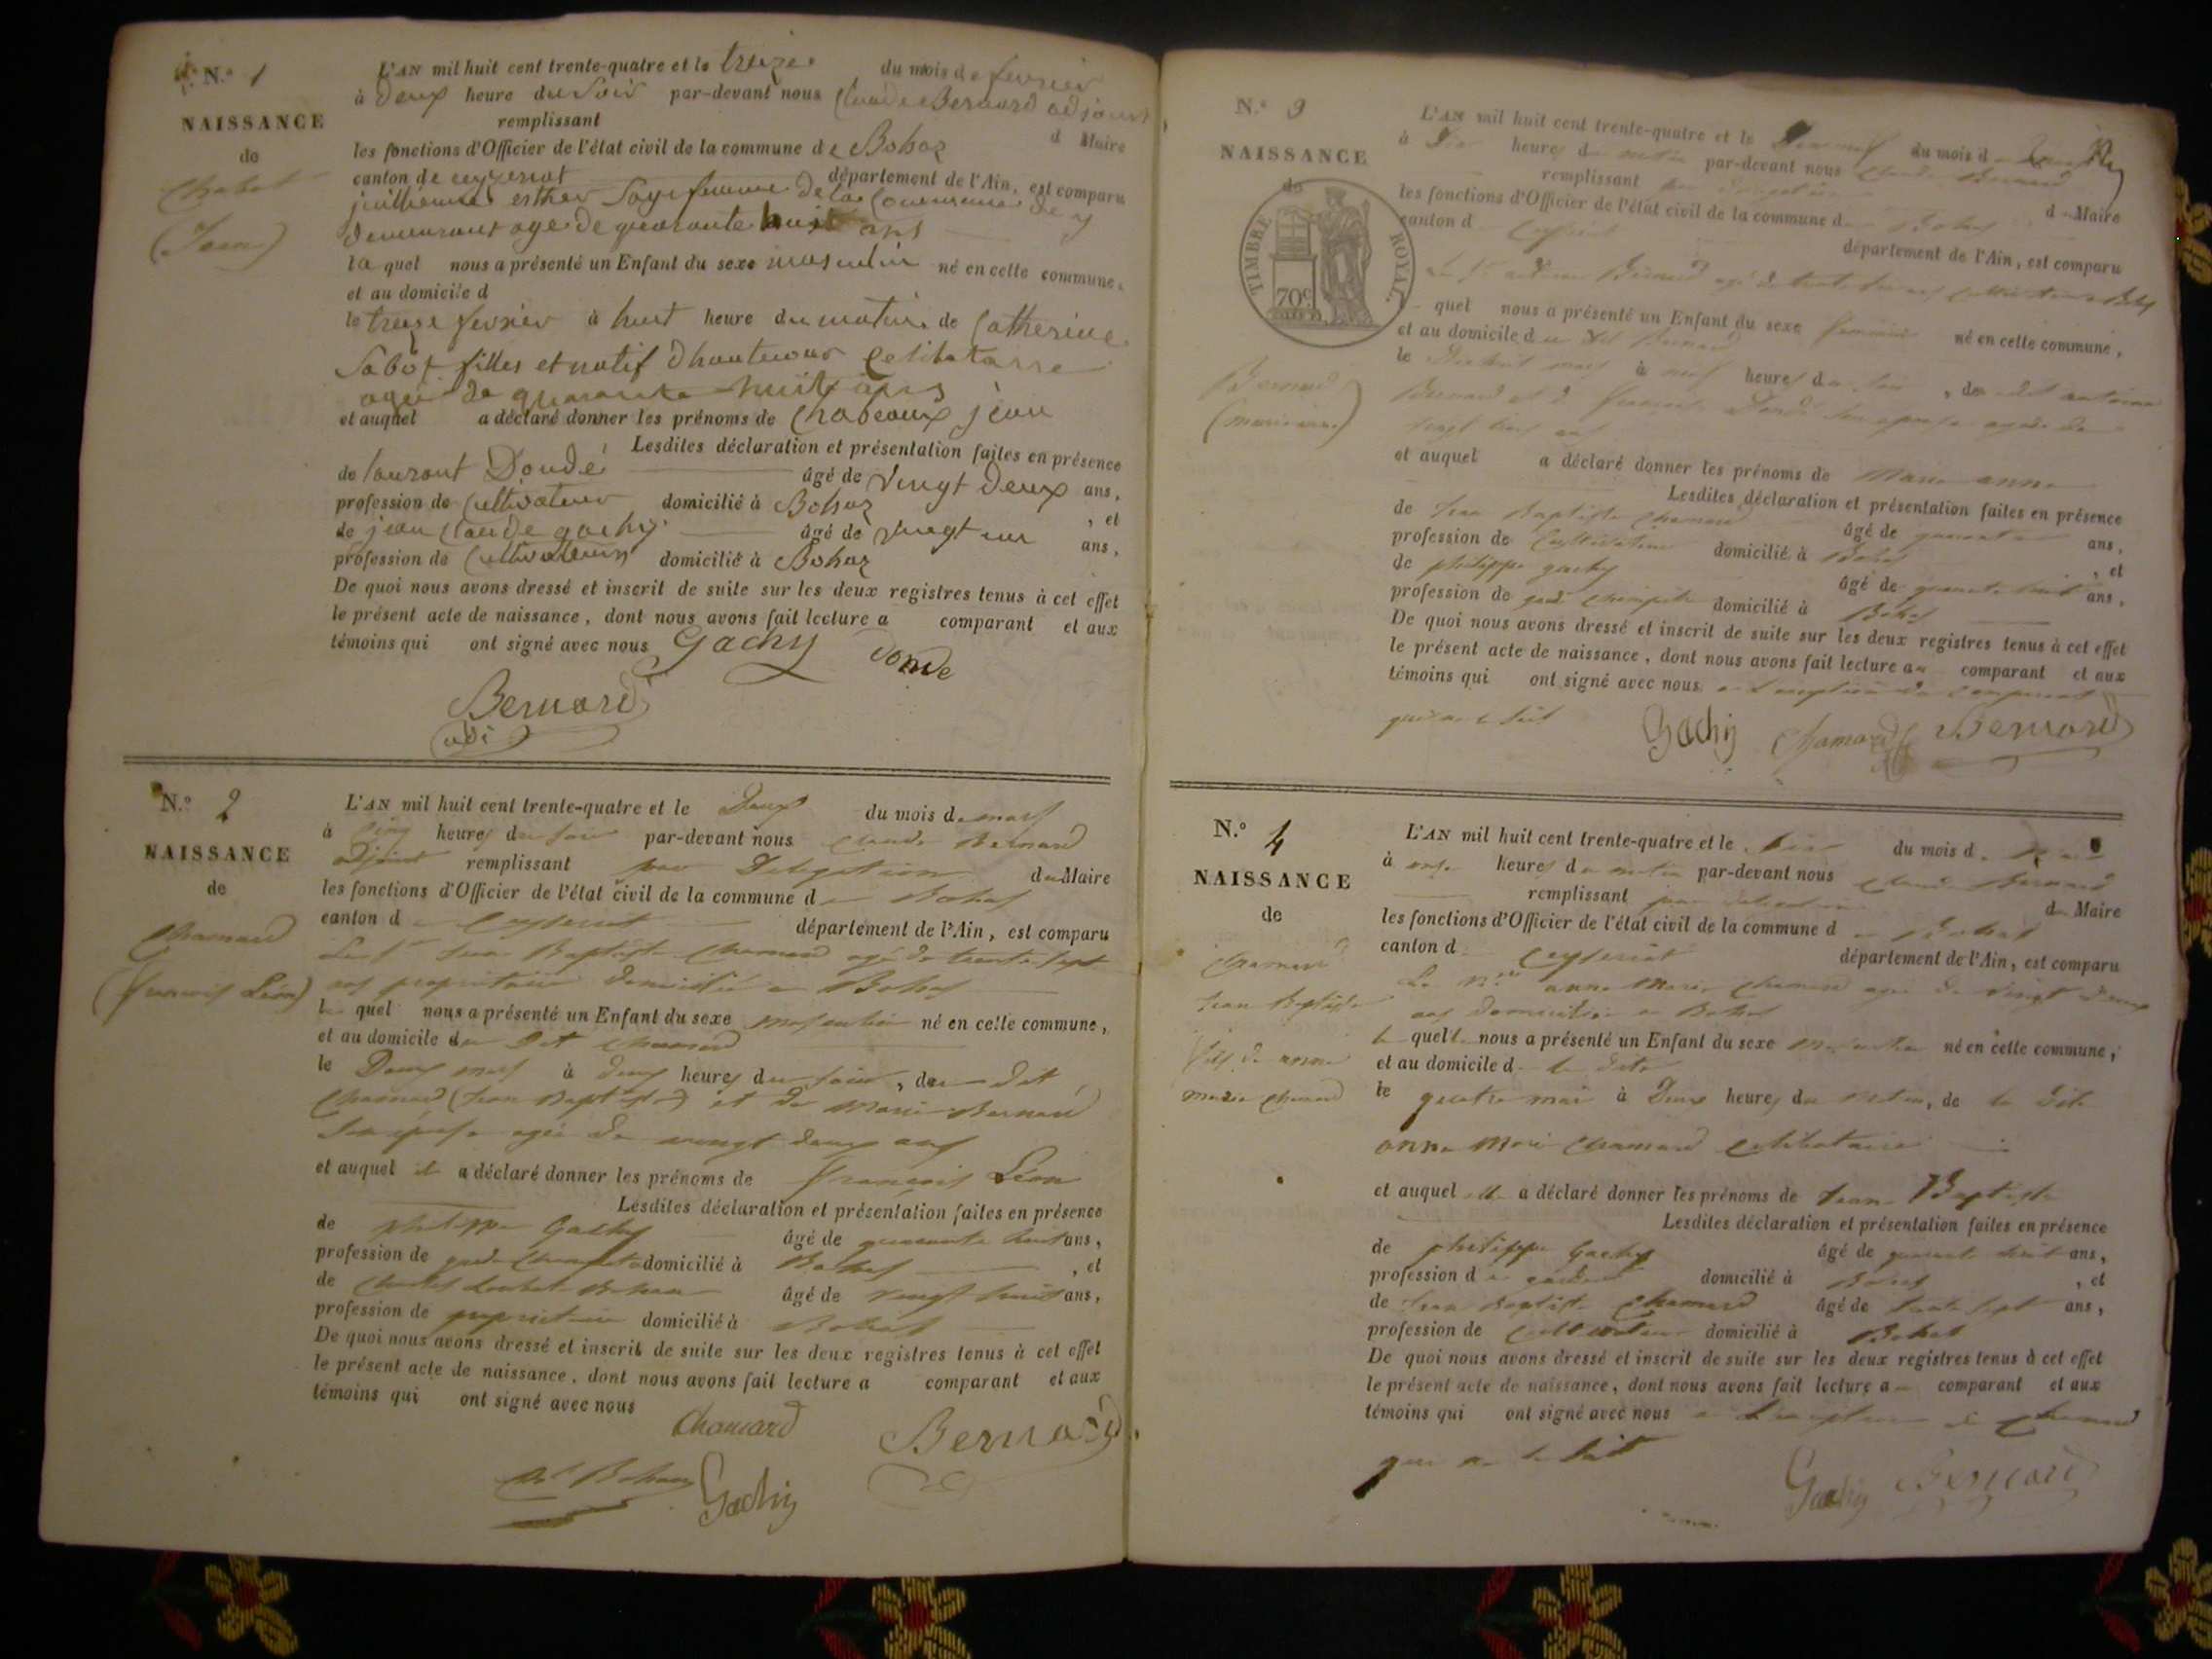 N.º 1
NAISSANCE
de
Chabot
(Jean)
L'AN mil huit cent trente-quatre et le treize du mois de fevrier
à deux heure du Soir par-devant nous Claude Bernard adjoint
remplissant d Maire
les fonctions d'Officier de l'état civil de la commune de Bohaz
canton de ceyzeriat département de l'Ain, est comparu
esther Sagefemme de la Commune de y
demeurant age de quarante huit ans
la quel nous a présenté un Enfant du sexe masculin né en cette commune,
et au domicile d
le treize fevrier à huit heure du matin de Catherine
Sabot filles et natif d'hauteville celibatarre
agée de quarante huit ans
et auquel a déclaré donner les prénoms de Chabeaux jean
Lesdites déclaration et présentation faites en présence
de laurant Dondé âgé de vingt deux ans,
profession de Cultivateur domicilié à Bohaz , et
de jean Claude gachy âgé de vingt un ans,
profession de Cultivateur domicilié à Bohaz
De quoi nous avons dressé et inscrit de suite sur les deux registres tenus à cet effet
le présent acte de naissance, dont nous avons fait lecture a comparant et aux
témoins qui ont signé avec nous Gachy Donde
Bernard
adj
N.º 2
NAISSANCE
de
Chamard
(francois Léon)
L'AN mil huit cent trente-quatre et le Deux du mois de mars
à cinq heures du soir par-devant nous Claude Bernard
adjoint remplissant par Delegation du Maire
les fonctions d'Officier de l'état civil de la commune de Bohas
canton de Ceyseriat département de l'Ain, est comparu
Le Sr Jean Baptiste Chamard agé de trente sept
ans propriétaire domicilié a Bohas
le quel nous a présenté un Enfant du sexe masculin né en cette commune,
et au domicile du Dit Chamard
le Deux mars à deux heures du soir, du dit
Chamard (Jean Baptiste) et de Marie Bernard
Son épouse agée de vingt deux ans
et auquel il a déclaré donner les prénoms de francois Léon
Lesdites déclaration et présentation faites en présence
de philippe Gachy âgé de quarante huit ans,
profession de garde champetre domicilié à Bohas , et
de âgé de vingt huit ans,
profession de propriétaire domicilié à Bohas
De quoi nous avons dressé et inscrit de suite sur les deux registres tenus à cet effet
le présent acte de naissance, dont nous avons fait lecture a comparant et aux
témoins qui ont signé avec nous
Chamard Bernard
Gachy
N.º 3
NAISSANCE
de
TIMBRE ROYAL
70c
Bernard
(marie anne)
L'AN mil huit cent trente-quatre et le du mois d
à Dix heures du matin par-devant nous Claude Bernard
remplissant par Delegation d Maire
les fonctions d'Officier de l'état civil de la commune de Bohas
canton d Ceyseriat département de l'Ain, est comparu
Le Sr antoine Bernard agé de trente
quel nous a présenté un Enfant du sexe feminin né en cette commune,
et au domicile du dit Bernard
le mars à neuf heures du soir, du dit antoine
Bernard et de Son epouse agée de
vingt ans
et auquel a déclaré donner les prénoms de Marie anne
Lesdites déclaration et présentation faites en présence
de Jean Baptiste Chamard âgé de quarante ans,
profession de Cultivateur domicilié à Bohas , et
de philippe gachy âgé de quarante huit ans,
profession de garde champetre domicilié à Bohas
De quoi nous avons dressé et inscrit de suite sur les deux registres tenus à cet effet
le présent acte de naissance, dont nous avons fait lecture au comparant et aux
témoins qui ont signé avec nous a l'exception du comparant
qui ne le sait Gachy Chamard Bernard
N.º 4
NAISSANCE
de
Chamard
Jean Baptiste
fils de anne
marie Chamard
L'AN mil huit cent trente-quatre et le du mois d
à onze heures du matin par-devant nous Claude Bernard
remplissant par delegation du Maire
les fonctions d'Officier de l'état civil de la commune de Bohas
canton d Ceyseriat département de l'Ain, est comparu
La anne Marie Chamard agée de vingt deux
ans domiciliée a Bohas
la quelle nous a présenté un Enfant du sexe masculin né en cette commune,
et au domicile d la dite
le quatre mai à Deux heures du matin, de la dite
anne Marie Chamard celibataire
et auquel elle a déclaré donner les prénoms de Jean Baptiste
Lesdites déclaration et présentation faites en présence
de philippe Gachy âgé de quarante huit ans,
profession de garde domicilié à Bohas , et
de Jean Baptiste Chamard âgé de trente sept ans,
profession de Cultivateur domicilié à Bohas
De quoi nous avons dressé et inscrit de suite sur les deux registres tenus à cet effet
le présent acte de naissance, dont nous avons fait lecture a comparant et aux
témoins qui ont signé avec nous a l'exception de Chamard
qui ne le sait
Gachy Bernard